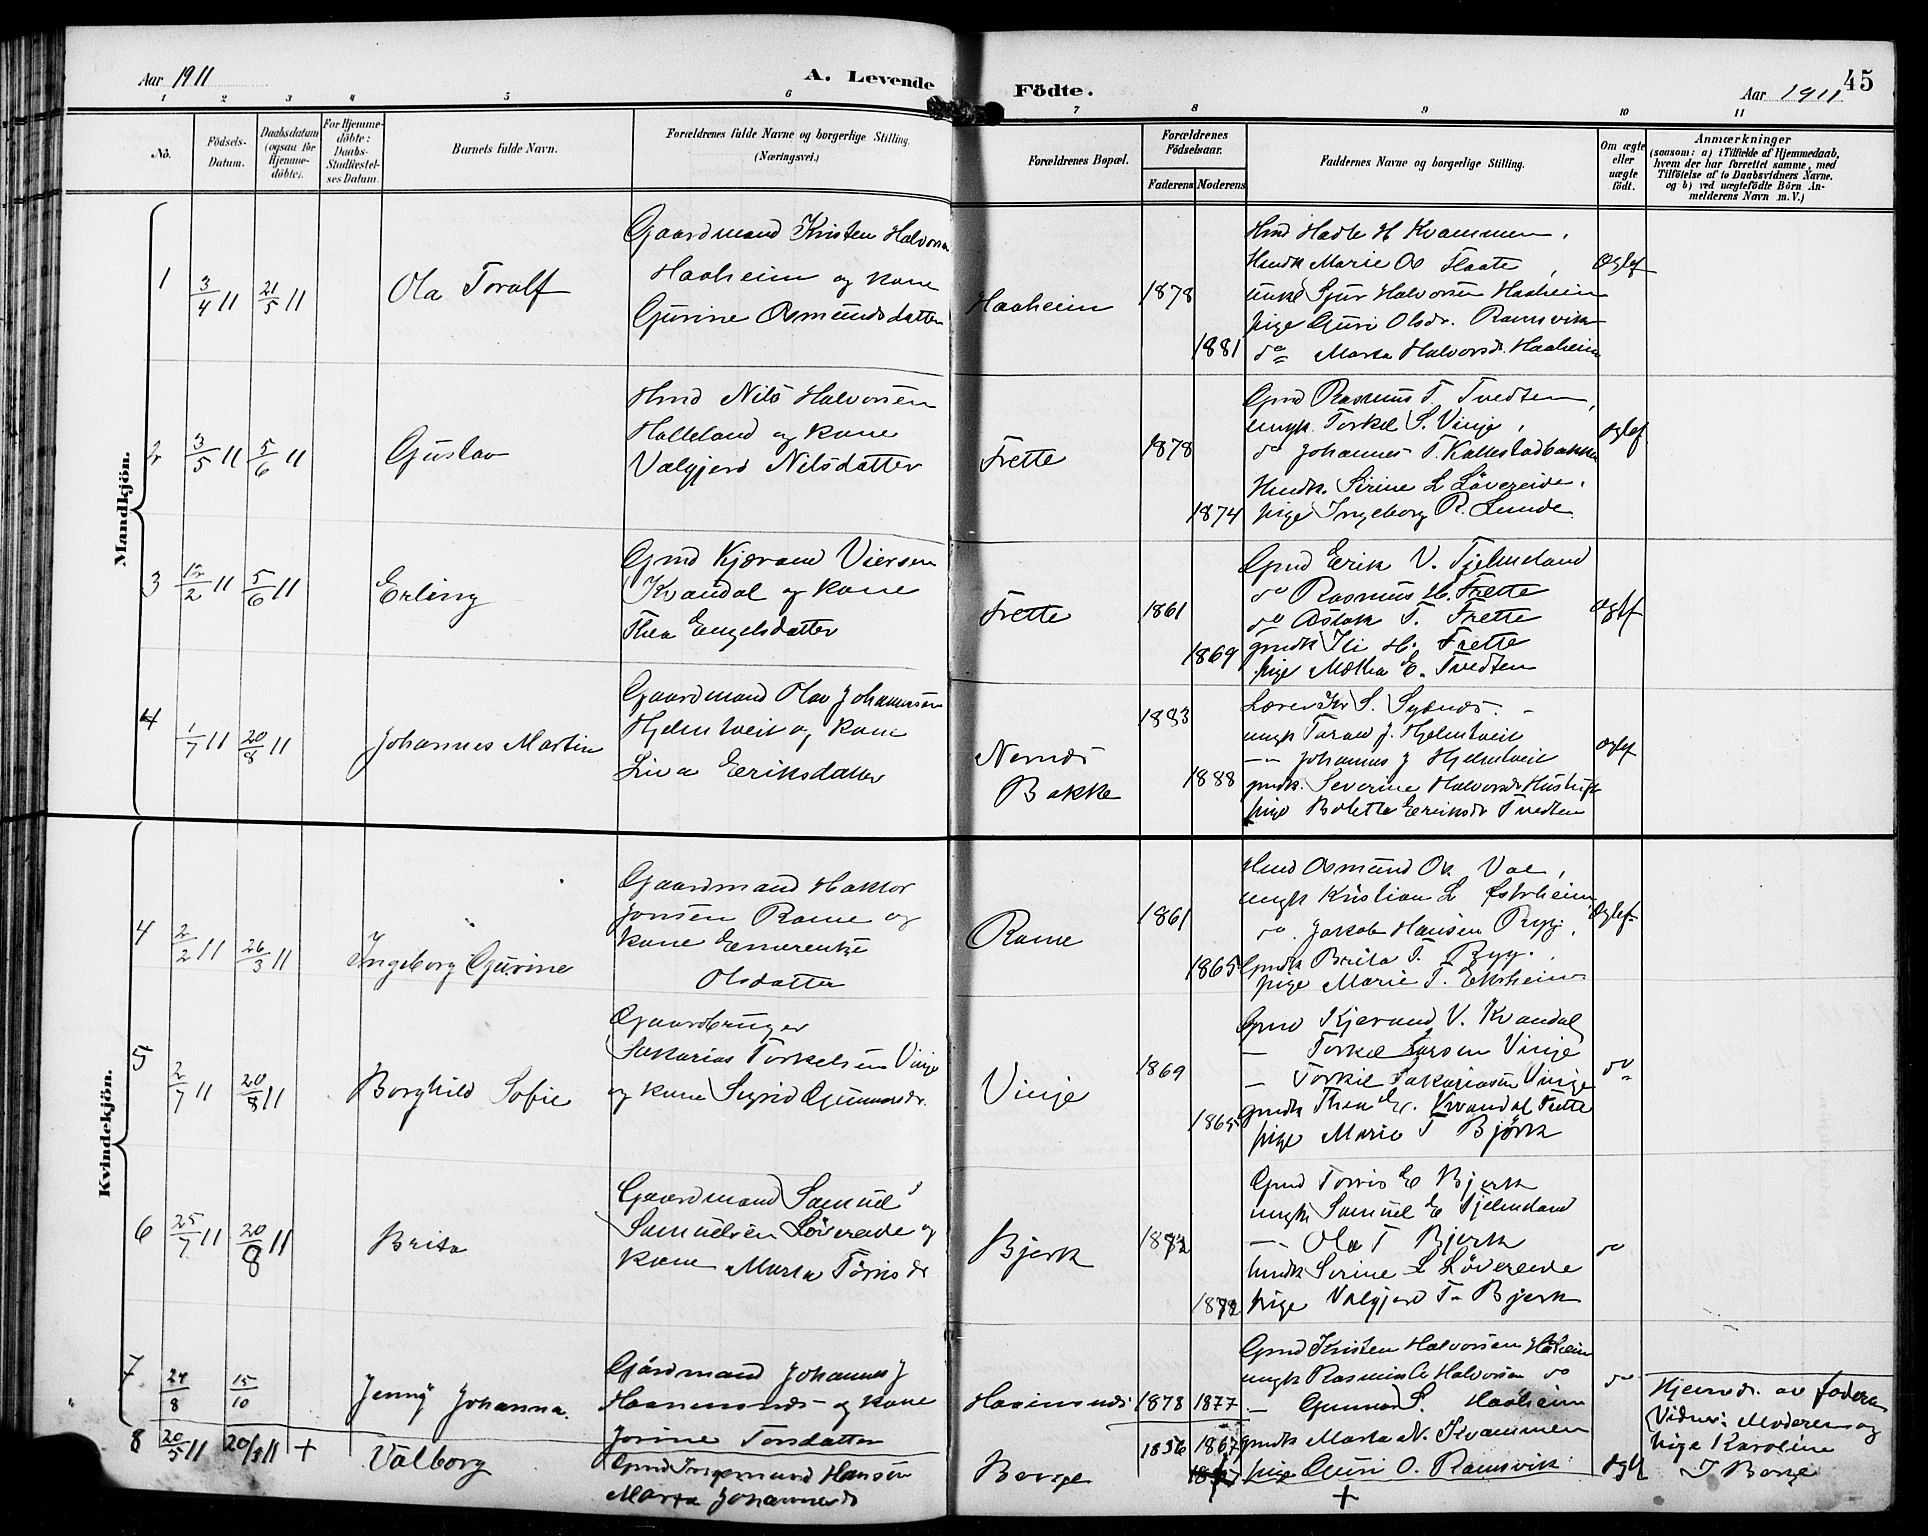 Aar 1911
A. Levende Födte.
Aar 1911
45
1 2 3 4 5 6 7 8 9 10 11
No.
Födsels-Datum.
Daabsdatum (ogsaa for Hjemme-döbte).
For Hjemme-döbte: Daabs-Stadfæstel-ses Datum.
Barnets fulde Navn.
Forældrenes fulde Navne og borgerlige Stilling.
(Næringsvei.)
Forældrenes Bopæl.
Forældrenes Födselsaar.
Faderens Moderens
Faddernes Navne og borgerlige Stilling.
Om ægte eller uægte födt.
Anmærkninger
(saasom: a) i Tilfælde af Hjemmedaab, hvem der har forrettet samme, med Tilföielse af to Daabsvidners Navne. og b) ved uægtefödte Börn An-melderens Navn m. V.)
Mandkjön.
1 3/4 11 21/5 11 Ola Toralf
Gaardmand Kristen Halvorsen
Haaheim og kone
Gurine Osmundsdatter
Haaheim 1878 1881
Hmd Hadle H Kvammen,
Hmdk Marie O Flaate,
unkl Sjur Halvorsen Haaheim
pige Guri Olsdr. Ramsvik
do Marta Halvorsdr. Haaheim
Ægtef
2 3/5 11 5/6 11 Gustav
Hmd Nils Halvorsen
Halleland og kone
Valgjerd Nilsdatter
Frette 1878 1874
Gmd Rasmus T. Tvedten,
ungk. Torkel S. Vinje,
do Johannes T. Kallestadbakken
Hmdk. Sirine L Lövereide,
pige Ingeborg R. Lunde
Ægtef
3 12/2 11 5/6 11 Erling
Gmd Kjærand Viersen
Kvandal og kone
Thea Engelsdatter
Frette 1861 1869
Gmd Erik V. Tjelmeland
do Rasmus H. Frette
do Aslak T. Frette
gmdk Ili H. Frette
pige Malla E. Tvedten
Ægtf
4 1/7 11 20/8 11 Johannes Martin
Gaardmand Olav Johannesen
Hjelmtveit og kone
Liva Eriksdatter
Nernes Bakke 1883 1888
Lærer S. Sydnes.
ungk Tarald J. Hjelmtveit
-- Johannes J Hjelmtveit
gmdk. Severine Halvorsdr
pige Boletta Eriksdr Tvedten
Ægtef
Kvindekjön.
4 2/2 11 26/3 11 Ingeborg Gurine
Gaardmand Haktor
Jonsen Rame og
kone Emerentse
Olsdatter
Rame 1861 1865
Hmd Osmund O. Vae,
ungk Kristian L Østrheim,
do. Jakob Hansen Ryg,
Gmdk Brita T. Ryg.
pige Marie T. Ekrheim
Ægtef
5 2/7 11 20/8 11 Borghild Sofie
Gaardbruger
Sakarias Torkelsen Vinje
og kone Sigrid Gunnarsdr.
Vinje 1869 1865
Gmd Kjerand V. Kvandal
- Torkel Larsen Vinje
- Torkil Sakariasen Vinje
gmdk Thea E. Kvandal Frette
pige Marie T Björk
do
6 25/7 11 20/8 11 Brita
Gaardmand Samuel
Samuelsen Lövereide og
kone Marta Torrisdr
Bjerk
Gmd Torris E Bjerk
ungk Samuel E Tjelmeland
- Ola T Bjerk
hmdk Serine L Lövereide
pige Valgjerd T. Bjerk
do
7 24/8 15/10 Jenny Johanna.
Gårdmand Johannes J
Haanesnes og kone
Jorine Torsdatter
1878 1877
Gmd Kristen Halvorsen Håheim
ungk Rasmus Halvorsen do
- Gunnar S. Haaheim
gmdk Marta N. Kvammen
pige Guri O. Ramsvik
do
Hjemd. av faderen
Vidner: Moderen og
pige Karoline
J Borge
8 20/5 11 20/5 11 + Valborg
Gmd Ingemund Hansen
Marta Johannesdr
Borge 1856 1867
+
Ægtf